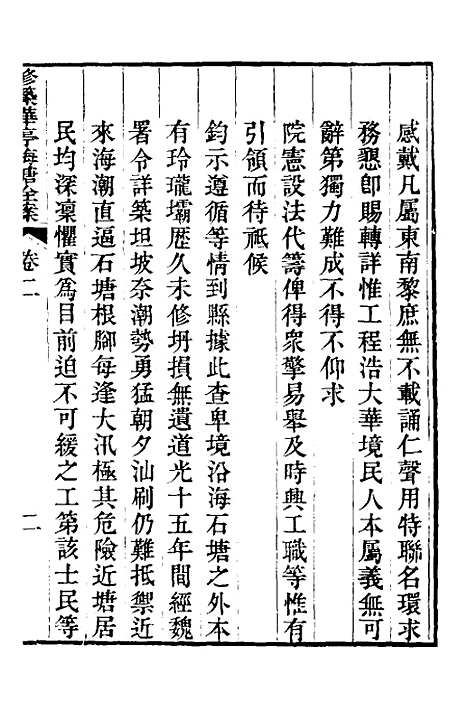 感戴凡屬東南黎庶無不載誦仁聲用特聯名環求
務懇卽賜轉詳惟工程浩大華境民人本屬義無可
辭第獨力難成不得不仰求
院憲設法代籌俾得衆擎易舉及時興工職等惟有
引領而待祗候
鈞示遵循等情到縣據此查卑境沿海石塘之外本
有玲瓏壩歷久未修坍損無遺道光十五年間經魏
署令詳築坦坡奈潮勢勇猛朝夕汕刷仍難抵禦近
來海潮直逼石塘根腳每逢大汛極其危險近塘居
民均深凜懼實爲目前迫不可緩之工第該士民等
修築華亭海塘全案
卷二
二